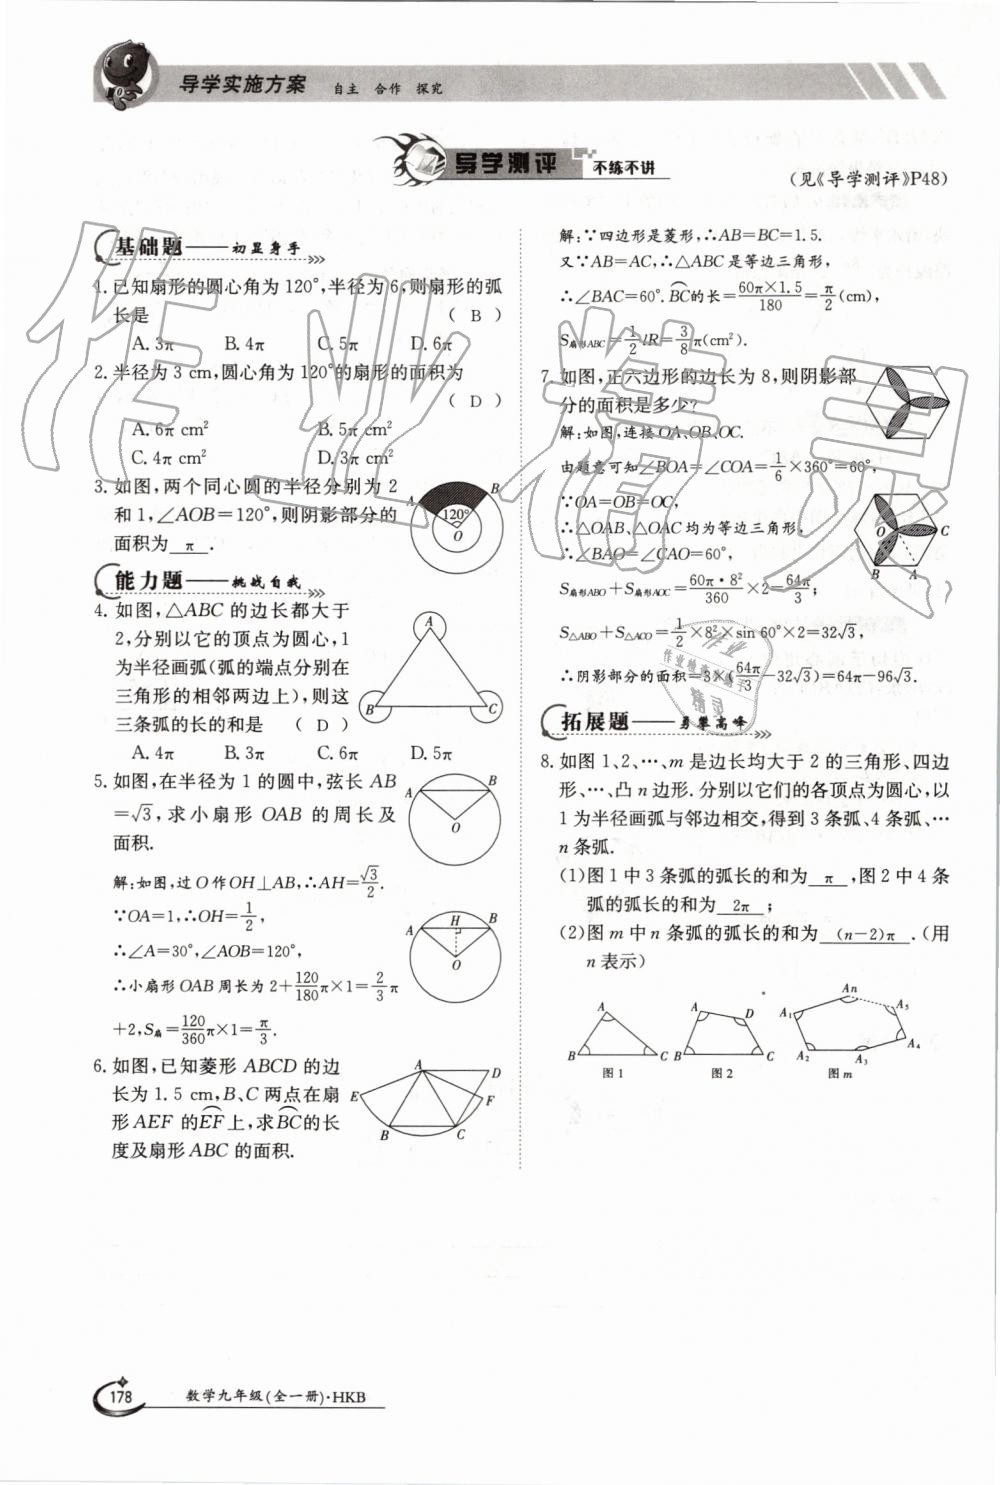 导学实施方案 自主 合作 探究
导学测评 不练不讲
(见《导学测评》P48)
基础题——初显身手
1. 已知扇形的圆心角为 120°,半径为 6,则扇形的弧
长是 ( B )
A. 3π B. 4π C. 5π D. 6π
2. 半径为 3 cm,圆心角为 120°的扇形的面积为
( D )
A. 6π cm² B. 5π cm²
C. 4π cm² D. 3π cm²
3. 如图,两个同心圆的半径分别为 2
和 1,∠AOB=120°,则阴影部分的
面积为 π .
A B 120° O
能力题——挑战自我
4. 如图,△ABC 的边长都大于
2,分别以它的顶点为圆心,1
为半径画弧(弧的端点分别在
三角形的相邻两边上),则这
三条弧的长的和是 ( D )
A. 4π B. 3π C. 6π D. 5π
A B C
5. 如图,在半径为 1 的圆中,弦长 AB
=√3,求小扇形 OAB 的周长及
面积.
A B O
解:如图,过 O 作 OH⊥AB,∴AH=√3/2.
∵OA=1,∴OH=1/2,
∴∠A=30°,∠AOB=120°,
∴小扇形 OAB 周长为 2+120/180π×1=2/3π
+2,S扇=120/360π×1=π/3.
A H B O
6. 如图,已知菱形 ABCD 的边
长为 1.5 cm,B、C 两点在扇
形 AEF 的EF上,求BC的长
度及扇形 ABC 的面积.
A D E F B C
解:∵四边形是菱形,∴AB=BC=1.5.
又∵AB=AC,∴△ABC 是等边三角形,
∴∠BAC=60°.BC的长=60π×1.5/180=π/2(cm),
S扇形ABC=1/2lR=3/8π(cm²).
7. 如图,正六边形的边长为 8,则阴影部
分的面积是多少?
解:如图,连接 OA、OB、OC.
由题意可知∠BOA=∠COA=1/6×360°=60°,
∵OA=OB=OC,
∴△OAB、△OAC 均为等边三角形,
∴∠BAO=∠CAO=60°,
O C B A
S扇形ABO+S扇形AOC=60π·8²/360×2=64π/3;
S△ABO+S△ACO=1/2×8²×sin 60°×2=32√3,
∴阴影部分的面积=3×(64π/3-32√3)=64π-96√3.
拓展题——勇攀高峰
8. 如图 1、2、…、m 是边长均大于 2 的三角形、四边
形、…、凸 n 边形. 分别以它们的各顶点为圆心,以
1 为半径画弧与邻边相交,得到 3 条弧、4 条弧、…
n 条弧.
(1)图 1 中 3 条弧的弧长的和为 π ,图 2 中 4 条
弧的弧长的和为 2π ;
(2)图 m 中 n 条弧的弧长的和为 (n-2)π .(用
n 表示)
A B C
A D B C
An A₁ A₅ A₂ A₃ A₄
图 1 图 2 图 m
178 数学九年级(全一册)·HKB
作业精灵
作业
作业检查小助手
精灵